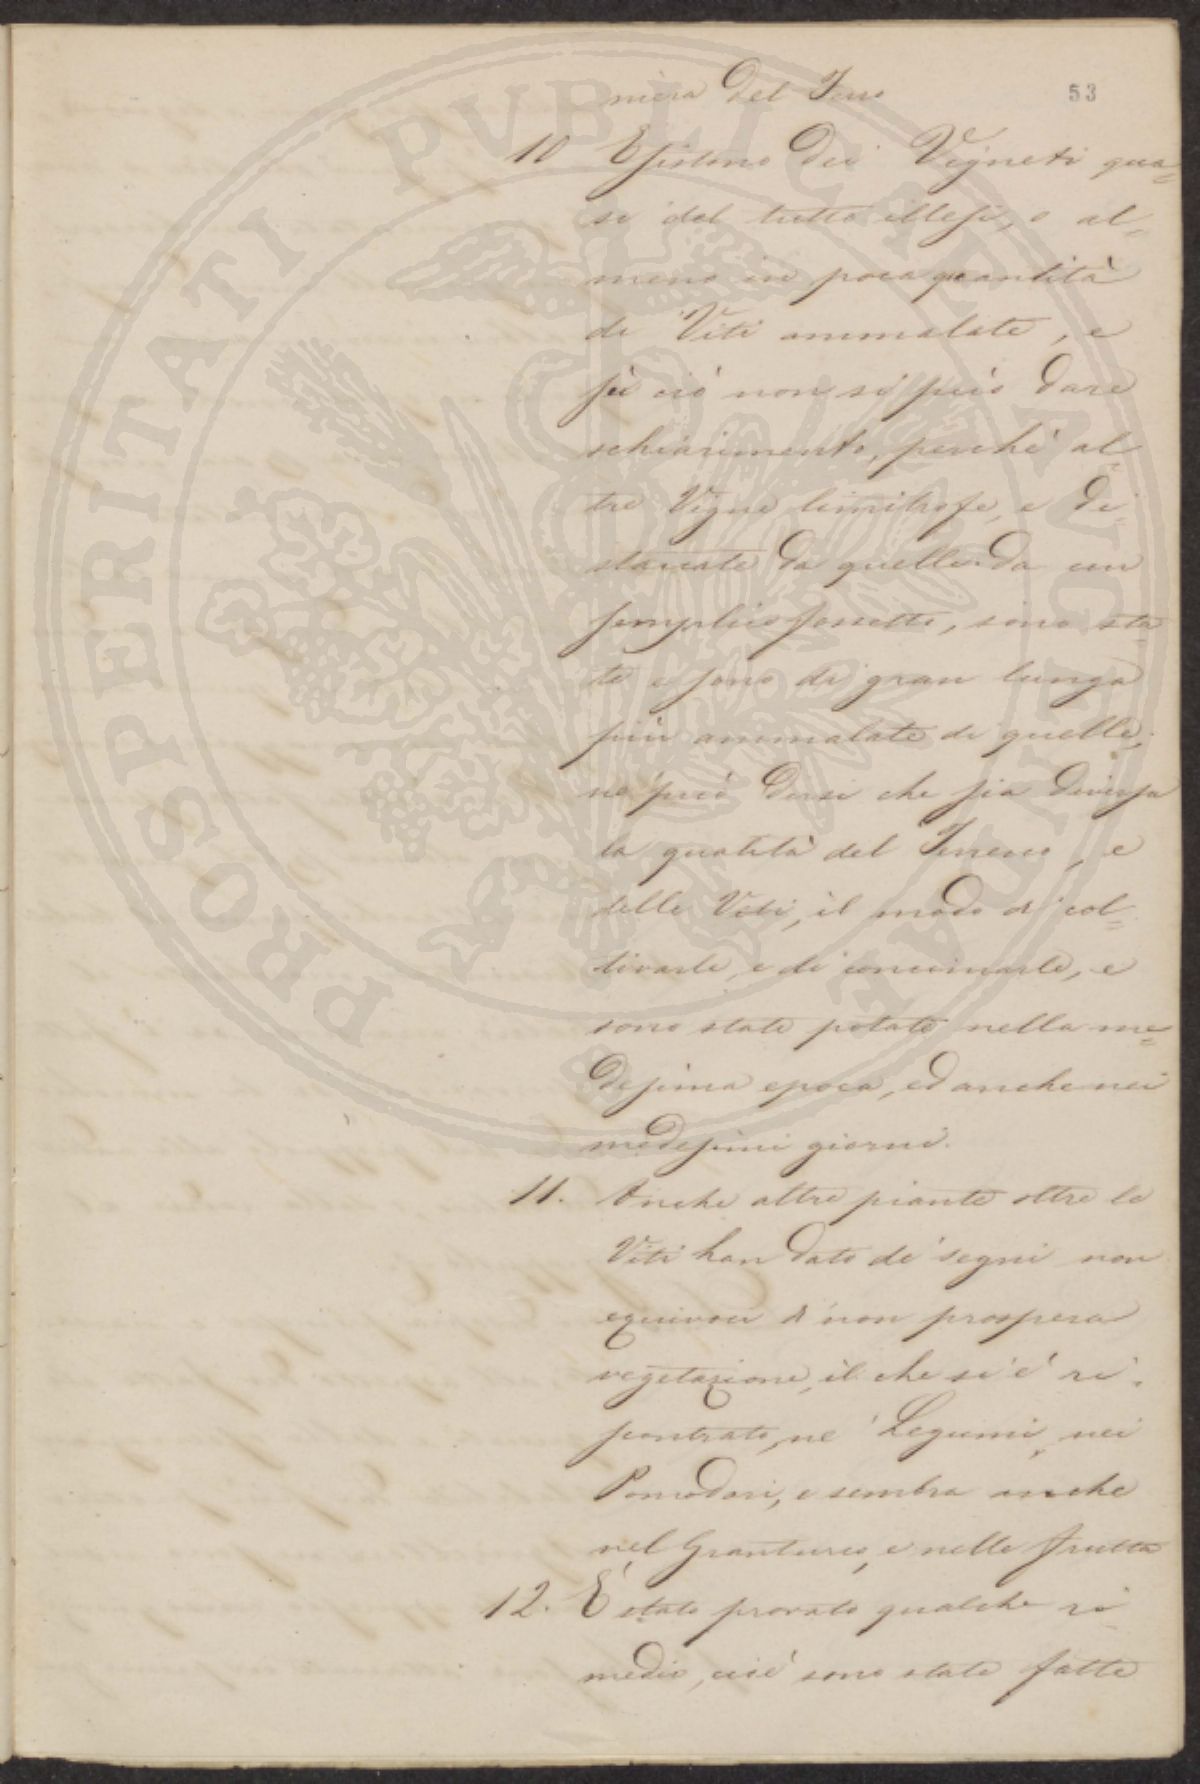 53
niera del Ferro
10 Esistono dei Vigneti qua=
si del tutto illesi, o al=
meno in poca quantità
di Viti ammalate, e
su ciò non si può dare
schiarimento, perchè al=
tre Vigne limitrofe, e di=
staccate da quelle da un
semplice fossetto, sono sta=
te e sono di gran lunga
più ammalate di quelle,
nè può dirsi che sia diversa
la qualità del Terreno, e
delle Viti, il modo di col=
tivarle, e di concimarle, e
sono state potate nella me=
desima epoca, ed anche nei
medesimi giorni.
11. Anche altre piante oltre le
Viti han dato de' segni non
equivoci di non prospera
vegetazione, il che si è ri=
scontrato, ne' Legumi, nei
Pomodori, e sembra anche
nel Granturco, e nelle frutta
12. È stato provato qualche ri=
medio, cioè sono state fatte
PROSPERITATI PVBLICAE AVGENDAE